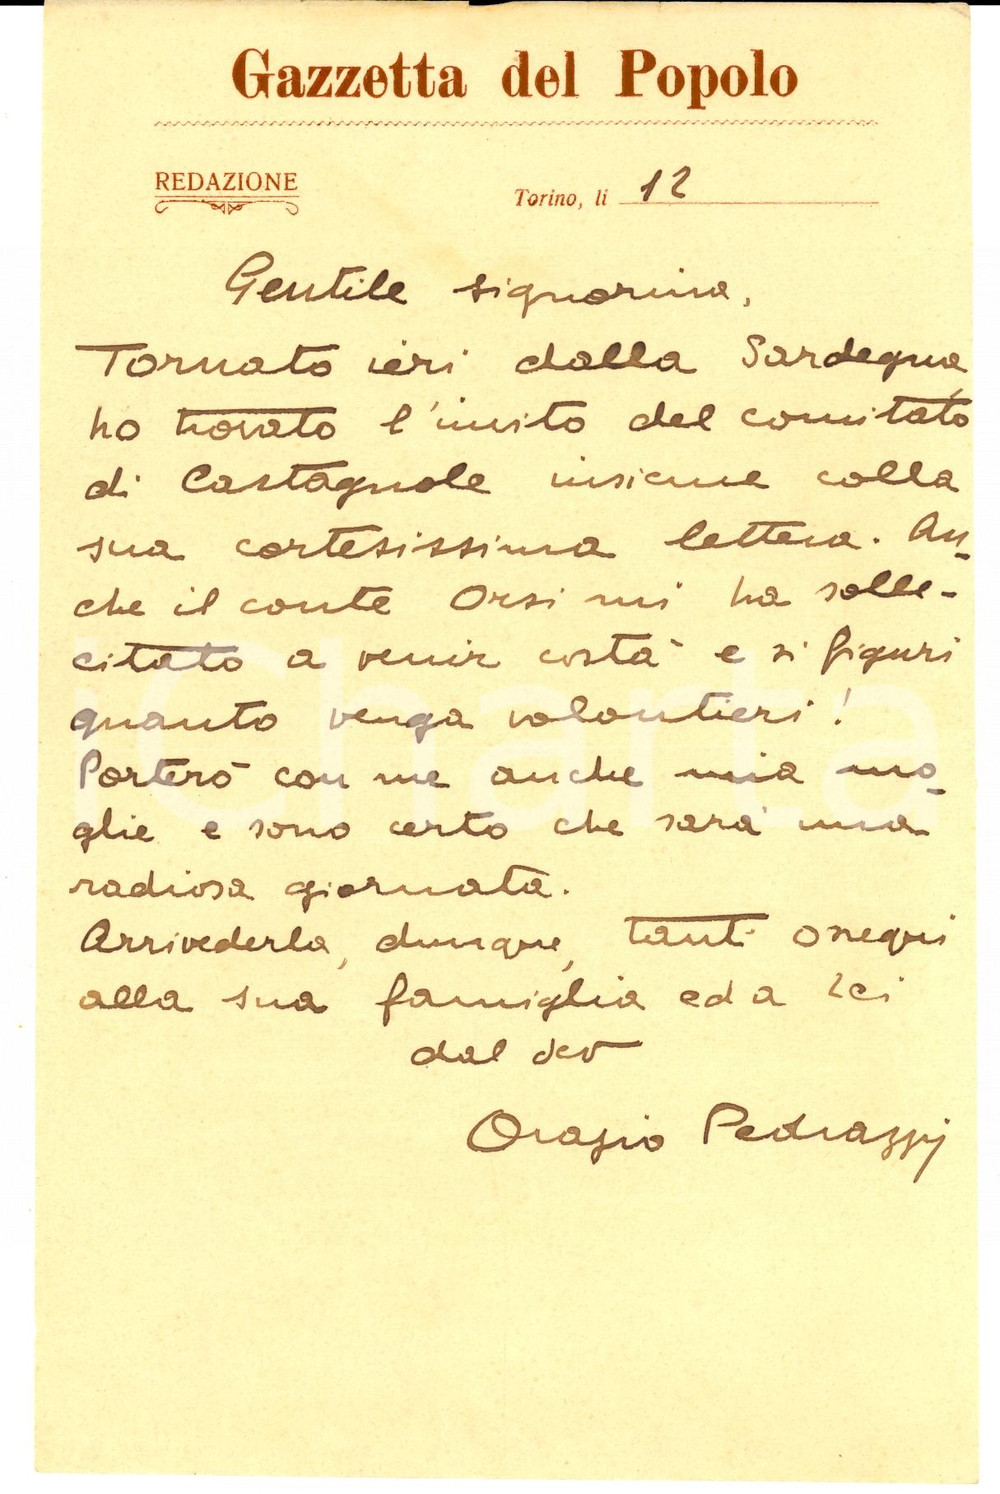 Gazzetta del Popolo
REDAZIONE
Torino, li 12
Gentile signorina,
Tornato ieri dalla Sardegna
ho trovato l'invito del comitato
di Castagnole insieme colla
sua cortesissima lettera. An-
che il conte Orsi mi ha solle-
citato a venir costà e si figuri
quanto venga volontieri!
Porterò con me anche mia mo-
glie e sono certo che sarà una
radiosa giornata.
Arrivederla, dunque, tanti ossequi
alla sua famiglia ed a Lei
dal dev
Orazio Pedrazzi
iCharta